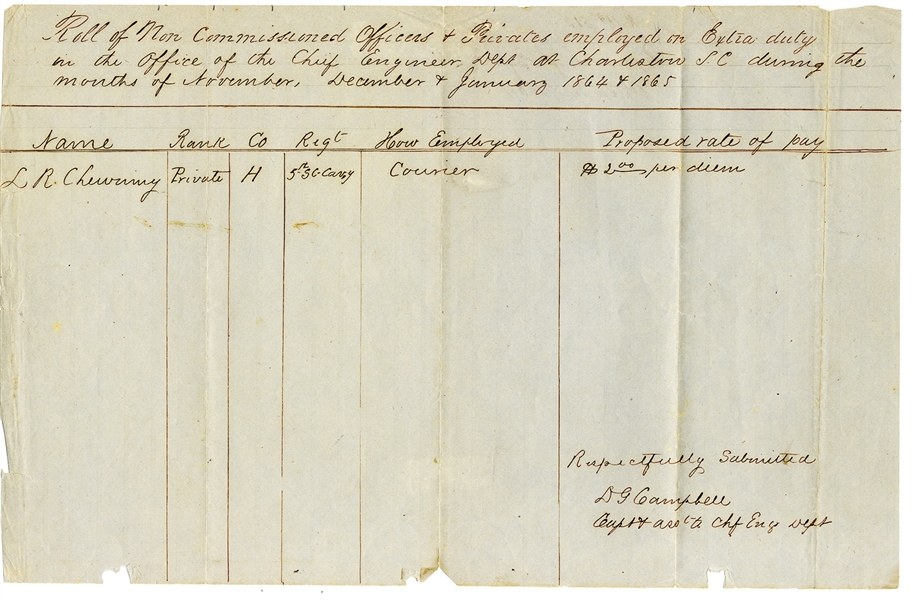 Roll of Non Commissioned Officers & Privates employed on Extra duty
in the Office of the Chief Engineer Dept at Charleston S.C during the
months of November, December & January 1864 & 1865
Name Rank Co Regt How Employed Proposed rate of pay
L R. Chewning Private H 5th SC Cavy Courier $2.00 per diem
Respectfully Submitted
D G Campbell
Capt & asst to Chf Eng Dept